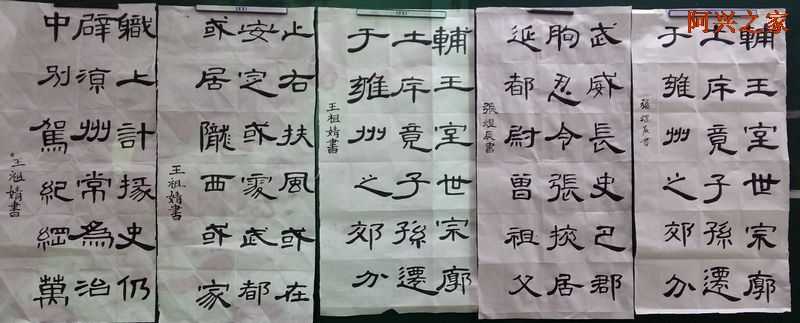 阿兴之家
輔王室世宗廓
土斥竟子孫遷
于雍州之郊分
張煜辰書
武威長史巴郡
朐忍令張掖居
延都尉曾祖父
張煜辰書
輔王室世宗廓
土斥竟子孫遷
于雍州之郊分
王祖婧書
止右扶風或在
安定或處武都
或居隴西或家
王祖婧書
職上計掾史仍
辟涼州常為治
中別駕紀綱萬
王祖婧書